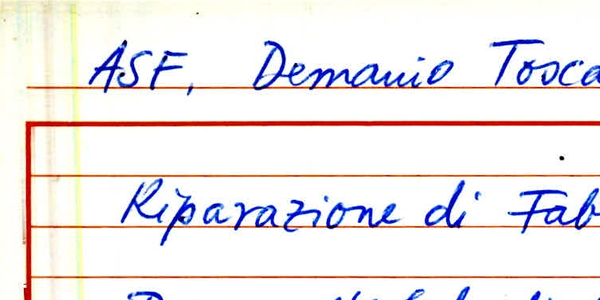 ASF, Demanio Tosca
Riparazione di Fab